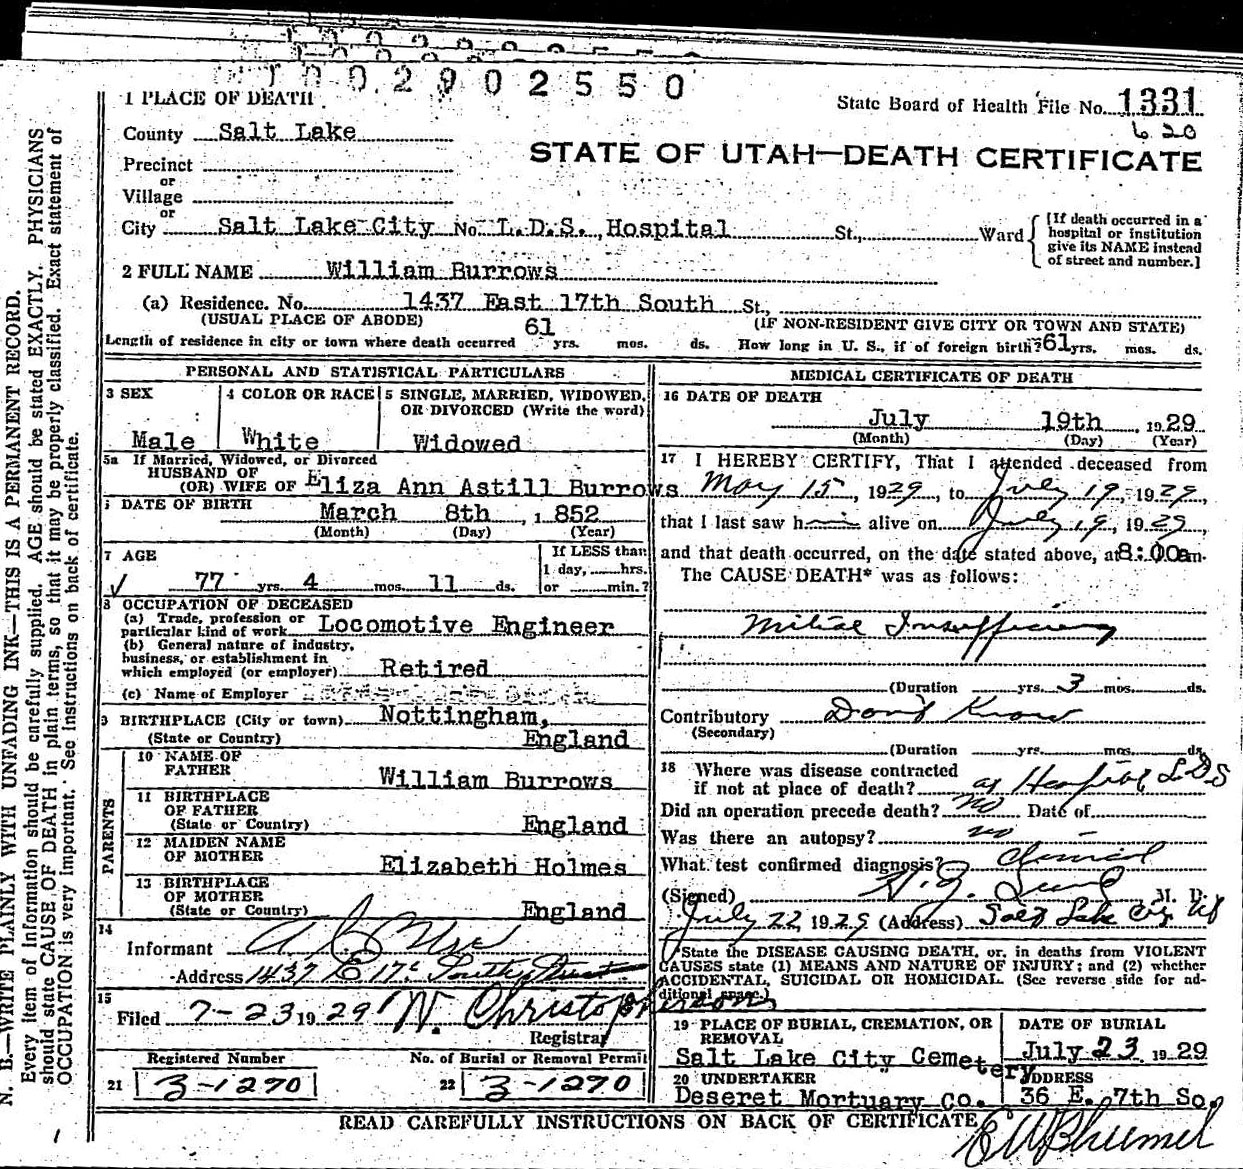 1002902550
1 PLACE OF DEATH
State Board of Health File No. 1331
620
County Salt Lake
STATE OF UTAH—DEATH CERTIFICATE
Precinct
or
Village
or
City Salt Lake City No. L.D.S. Hospital St., Ward
[If death occurred in a
hospital or institution
give its NAME instead
of street and number.]
2 FULL NAME William Burrows
(a) Residence. No. 1437 East 17th South St.,
(USUAL PLACE OF ABODE) (IF NON-RESIDENT GIVE CITY OR TOWN AND STATE)
Length of residence in city or town where death occurred 61 yrs. mos. ds. How long in U. S., if of foreign birth? 61 yrs. mos. ds.
PERSONAL AND STATISTICAL PARTICULARS
3 SEX
Male
4 COLOR OR RACE
White
5 SINGLE, MARRIED, WIDOWED,
OR DIVORCED (Write the word)
Widowed
5a If Married, Widowed, or Divorced
HUSBAND OF
(OR) WIFE OF Eliza Ann Astill Burrows
DATE OF BIRTH
March 8th, 1852
(Month) (Day) (Year)
7 AGE
77 yrs. 4 mos. 11 ds.
If LESS than
1 day, hrs.
or min.?
8 OCCUPATION OF DECEASED
(a) Trade, profession or
particular kind of work Locomotive Engineer
(b) General nature of industry,
business, or establishment in
which employed (or employer) Retired
(c) Name of Employer
9 BIRTHPLACE (City or town) Nottingham,
(State or Country) England
PARENTS
10 NAME OF
FATHER William Burrows
11 BIRTHPLACE
OF FATHER
(State or Country) England
12 MAIDEN NAME
OF MOTHER Elizabeth Holmes
13 BIRTHPLACE
OF MOTHER
(State or Country) England
14
Informant
Address 1437 E 17th South Street
15
Filed 7-23 1929 W. Christophersons
Registrar
Registered Number
21 3-1270
No. of Burial or Removal Permit
22 3-1270
MEDICAL CERTIFICATE OF DEATH
16 DATE OF DEATH
July 19th, 1929
(Month) (Day) (Year)
17 I HEREBY CERTIFY, That I attended deceased from
May 15, 1929, to July 19, 1929,
that I last saw him alive on July 19, 1929,
and that death occurred, on the date stated above, at 8:00am.
The CAUSE DEATH* was as follows:
Mitral Insufficiency
(Duration yrs. 3 mos. ds.
Contributory Don't Know
(Secondary)
(Duration yrs. mos. ds.
18 Where was disease contracted
if not at place of death? at Hospital L.D.S
Did an operation precede death? no Date of
Was there an autopsy? no
What test confirmed diagnosis? Clinical
(Signed) M. D.
July 22, 1929 (Address) Salt Lake City Ut
*State the DISEASE CAUSING DEATH, or, in deaths from VIOLENT
CAUSES state (1) MEANS AND NATURE OF INJURY; and (2) whether
ACCIDENTAL, SUICIDAL OR HOMICIDAL. (See reverse side for ad-
ditional space.)
19 PLACE OF BURIAL, CREMATION, OR
REMOVAL
Salt Lake City Cemetery
DATE OF BURIAL
July 23 1929
20 UNDERTAKER
Deseret Mortuary Co.
ADDRESS
36 E. 7th So.
READ CAREFULLY INSTRUCTIONS ON BACK OF CERTIFICATE
N. B.—WRITE PLAINLY WITH UNFADING INK—THIS IS A PERMANENT RECORD.
Every item of information should be carefully supplied. AGE should be stated EXACTLY. PHYSICIANS
should state CAUSE OF DEATH in plain terms, so that it may be properly classified. Exact statement of
OCCUPATION is very important. See instructions on back of certificate.